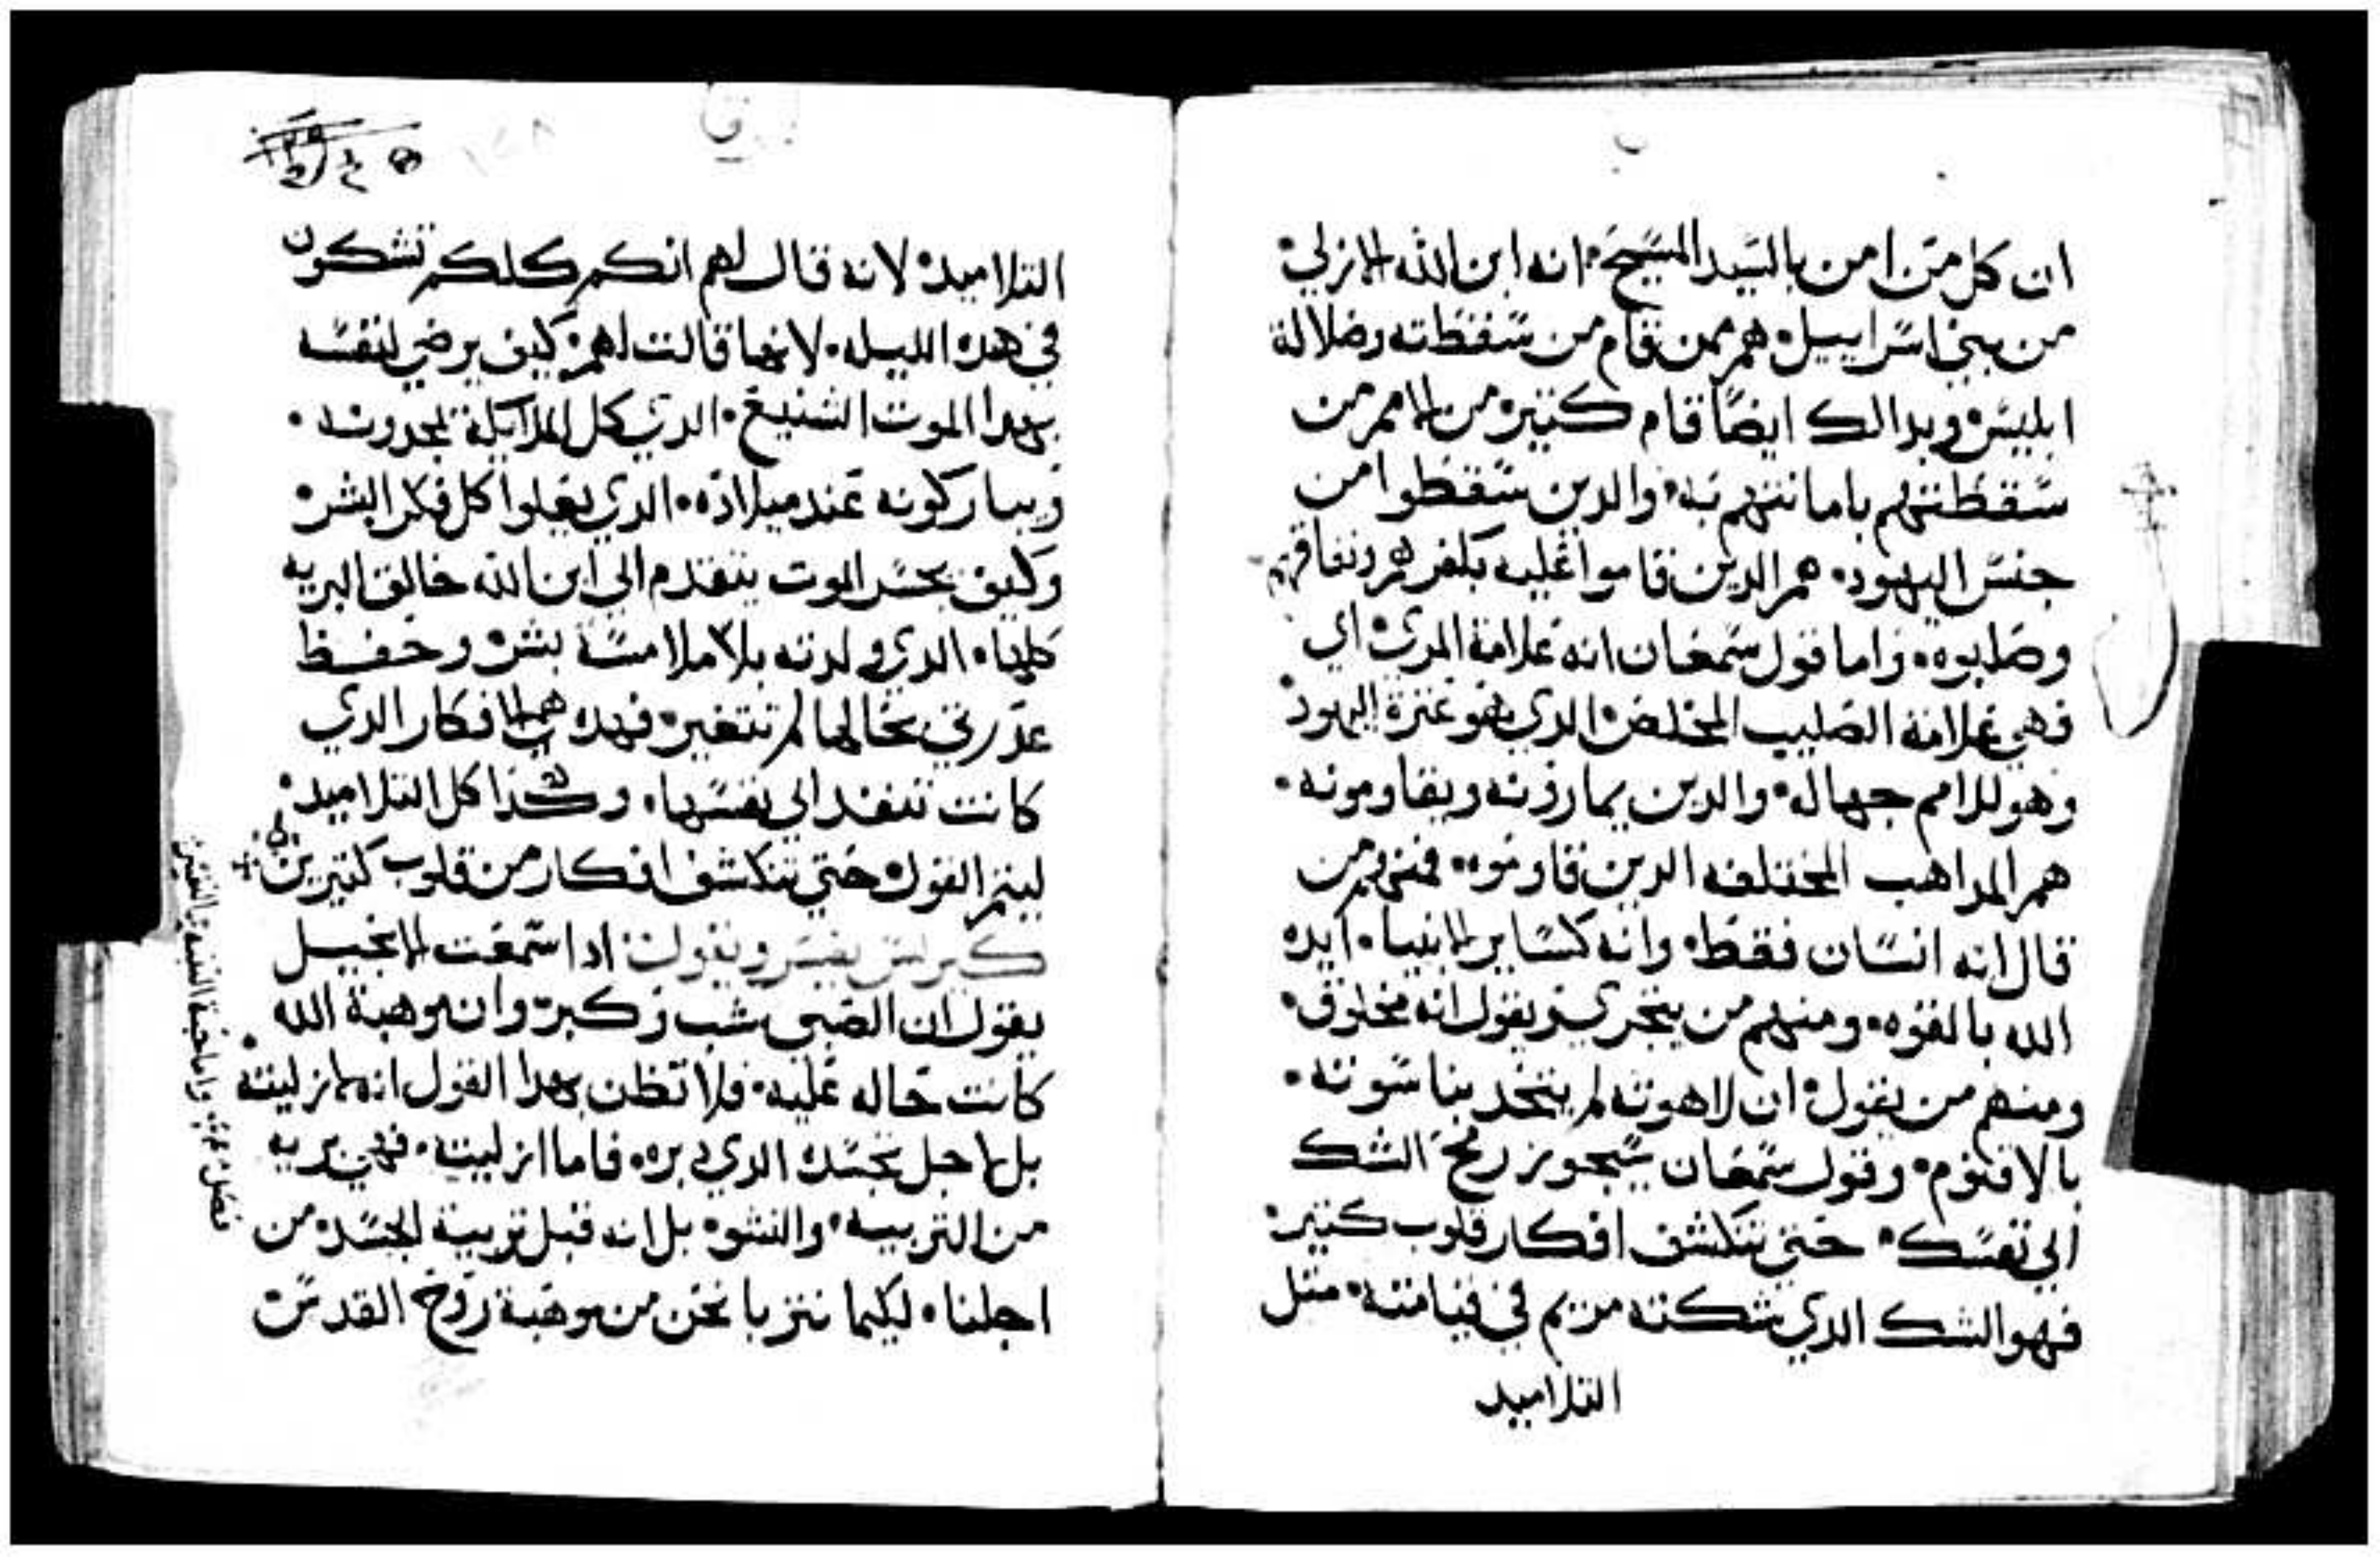 ان كل من امن بالسيد المسيح انه ابن الله الازلي
من بني اسراييل هم ممن قام من سقطته وضلالة
ابليس وبدالك ايضا قام كتيره من الامم من
سقطتهم بامانتهم به والدين سقطوا من
جنس اليهود هم الدين قاموا عليه بكفرهم ونفاقهم
وصلبوه واما قول سمعان انه علامة المرى اي
فهي علامة الصليب المخلص الدي هو عترة اليهود
وهو للامم جهاله والدين يمارونه ويقاومونه
هم المداهب المختلفه الدين قاوموه فمنهم من
قال انه انسان فقط وانه كساير الانبيا ايده
الله بالقوه ومنهم من يتجرى ويقول انه مخلوق
ومنهم من يقول ان لاهوته لم يتحد بناسوته
بالاقنوم وقول سمعان سيجوز رمح الشك
الي نفسك حتي تنكشف افكار قلوب كتيره
فهو الشك الدي شكته مريم في قيامته متل
التلاميد
التلاميد لانه قال لهم انكم كلكم تشكون
في هده الليله لانها قالت لهم كيف يرضي لنفسه
بهدا الموت الشنيع الدي كل الملايكة يمجدونه
ويباركونه عند ميلاده الدي يعلوا كل فكر البشر
وكيف يجسر الموت يتقدم الي ابن الله خالق البريه
كلها الدي ولدته بلا ملامسة بشر وحفظ
عدرتي بحالها لم تتغير فهده هي الافكار الدي
كانت تنفد الي نفسها وهكذا كل التلاميد
ليتم القول حتي تنكشف افكار من قلوب كتيرين
كيرلس يفسر ويقول ادا سمعت الانجيل
يقول ان الصبي شب وكبر وان موهبة الله
كانت حاله عليه فلا تظن بهدا القول انه لازليته
بل لاجل تجسده الدي دبره فاما ازليته فهي بريه
من التربيه والنشو بل انه قبل تربية الجسد من
اجلنا ليكيما نتربا نحن من موهبة روح القدس